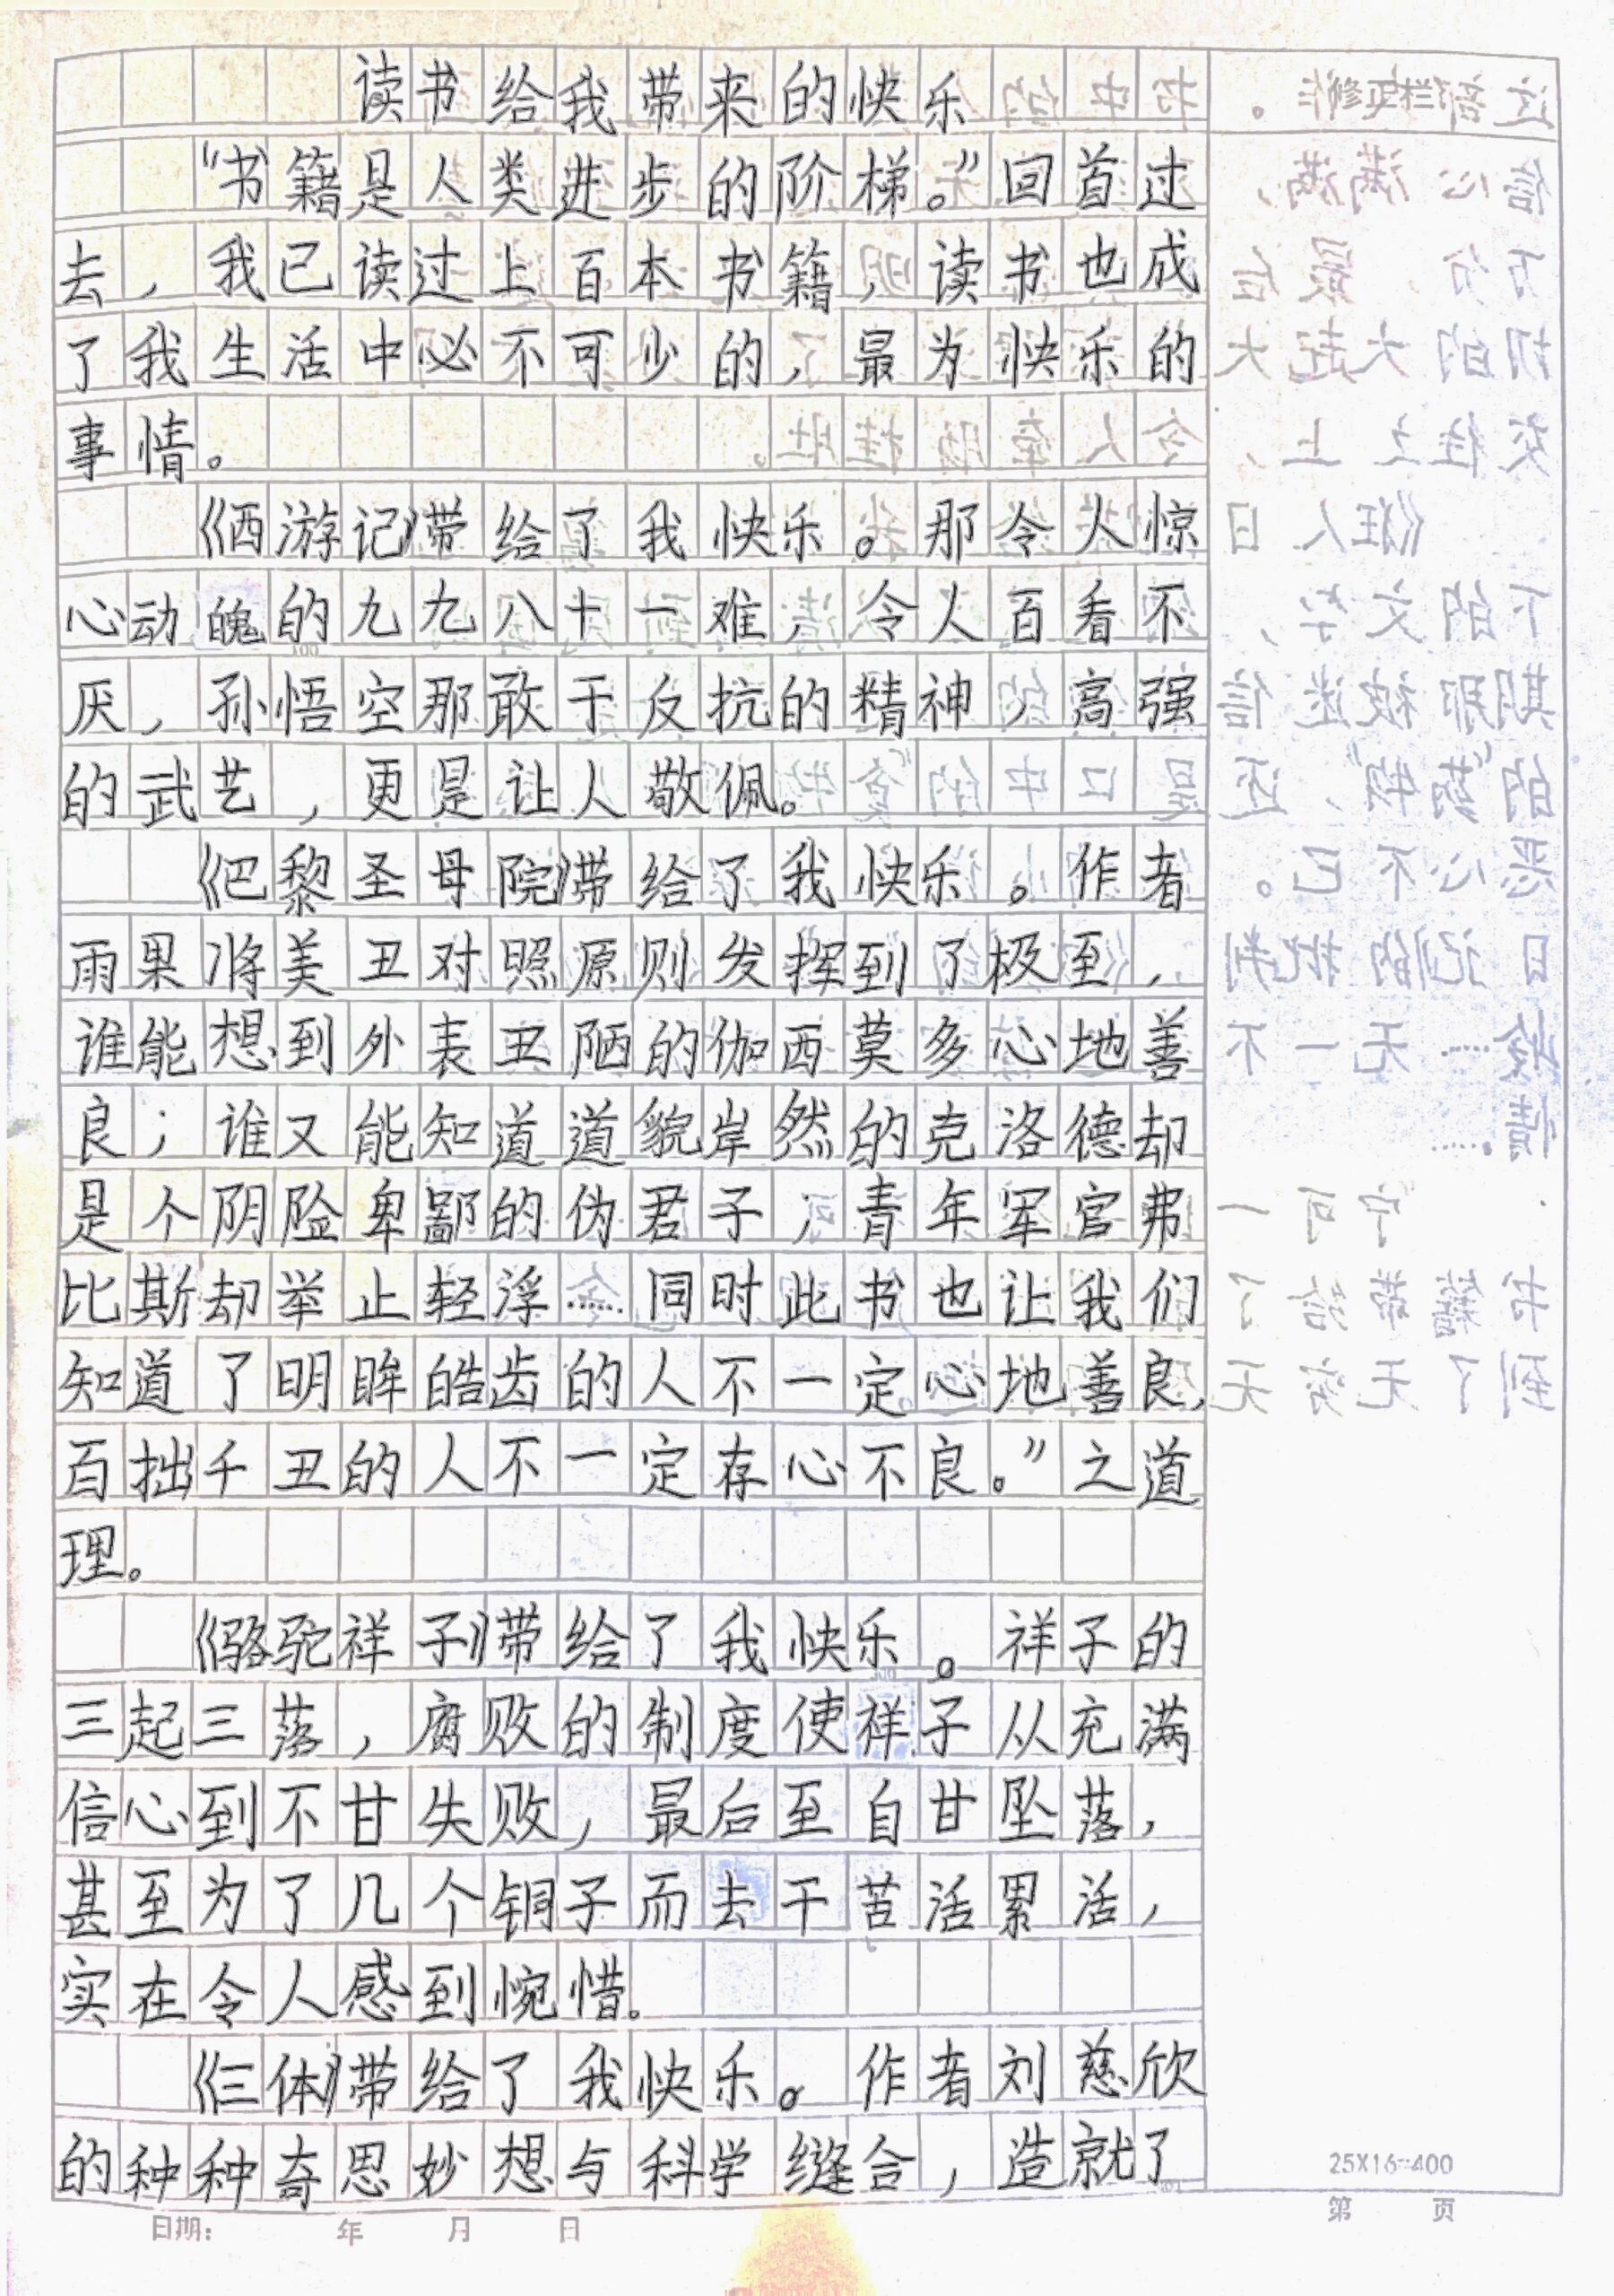 读书给我带来的快乐
“书籍是人类进步的阶梯。”回首过
去，我已读过上百本书籍，读书也成
了我生活中必不可少的，最为快乐的
事情。
《西游记》带给了我快乐。那令人惊
心动魄的九九八十一难，令人百看不
厌，孙悟空那敢于反抗的精神，高强
的武艺，更是让人敬佩。
《巴黎圣母院》带给了我快乐。作者
雨果将美丑对照原则发挥到了极至，
谁能想到外表丑陋的伽西莫多心地善
良；谁又能知道道貌岸然的克洛德却
是个阴险卑鄙的伪君子，青年军官弗
比斯却举止轻浮……同时此书也让我们
知道了明眸皓齿的人不一定心地善良，
百拙千丑的人不一定存心不良。”之道
理。
《骆驼祥子》带给了我快乐。祥子的
三起三落，腐败的制度使祥子从充满
信心到不甘失败，最后至自甘坠落，
甚至为了几个铜子而去干苦活累活，
实在令人感到惋惜。
《三体》带给了我快乐。作者刘慈欣
的种种奇思妙想与科学缝合，造就了
25×16=400
第 页
日期： 年 月 日